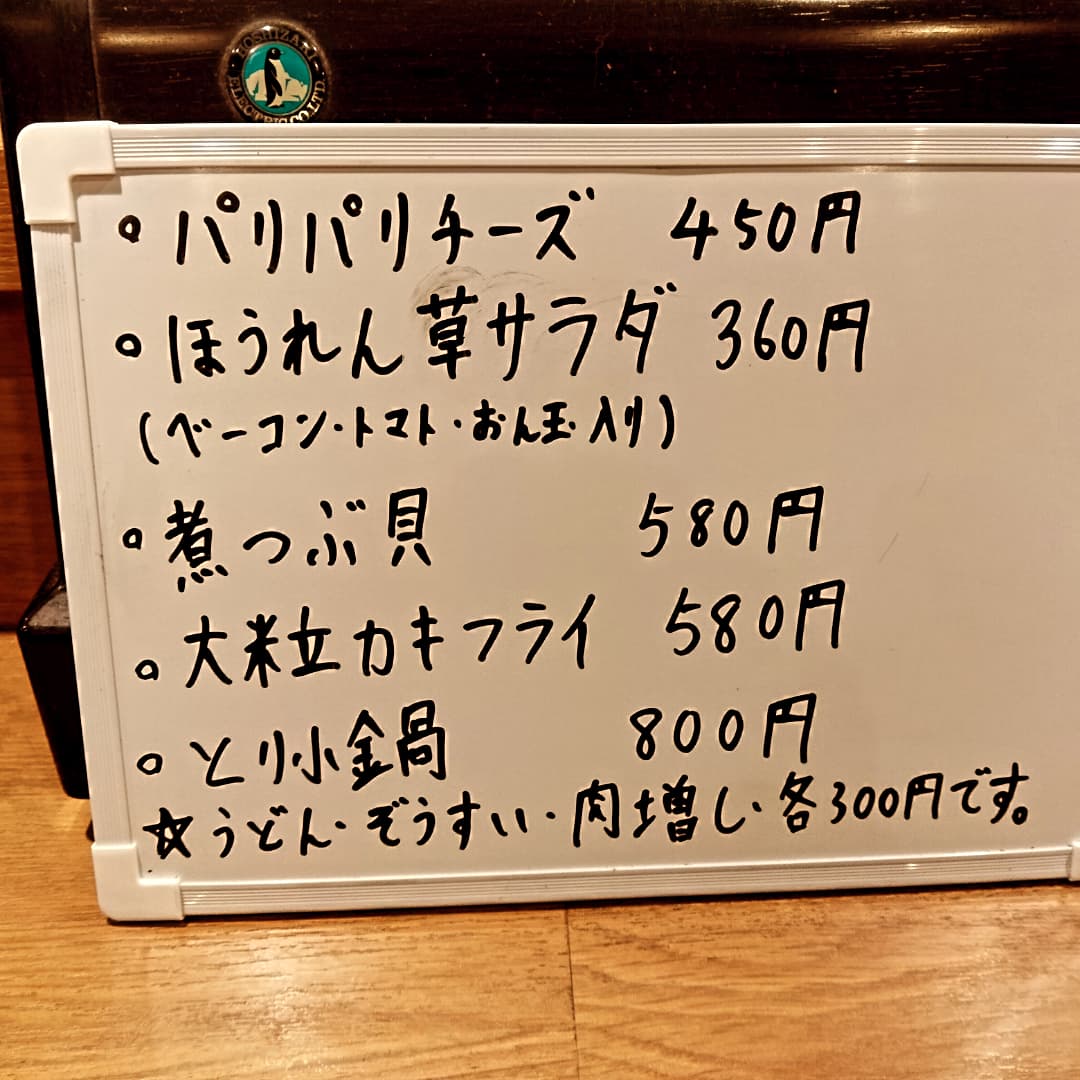 HOSHIZAKI ELECTRIC CO.,LTD.
。パリパリチーズ 450円
。ほうれん草サラダ 360円
(ベーコン・トマト・おん玉入り)
。煮つぶ貝 580円
。大粒カキフライ 580円
。とり小鍋 800円
☆うどん・ぞうすい・肉増し・各300円です。